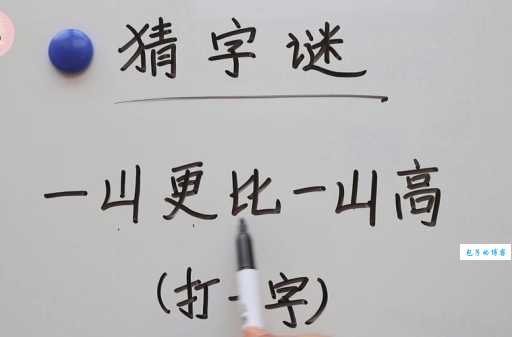 猜字谜
一山更比一山高
包子的博客
(打一字)